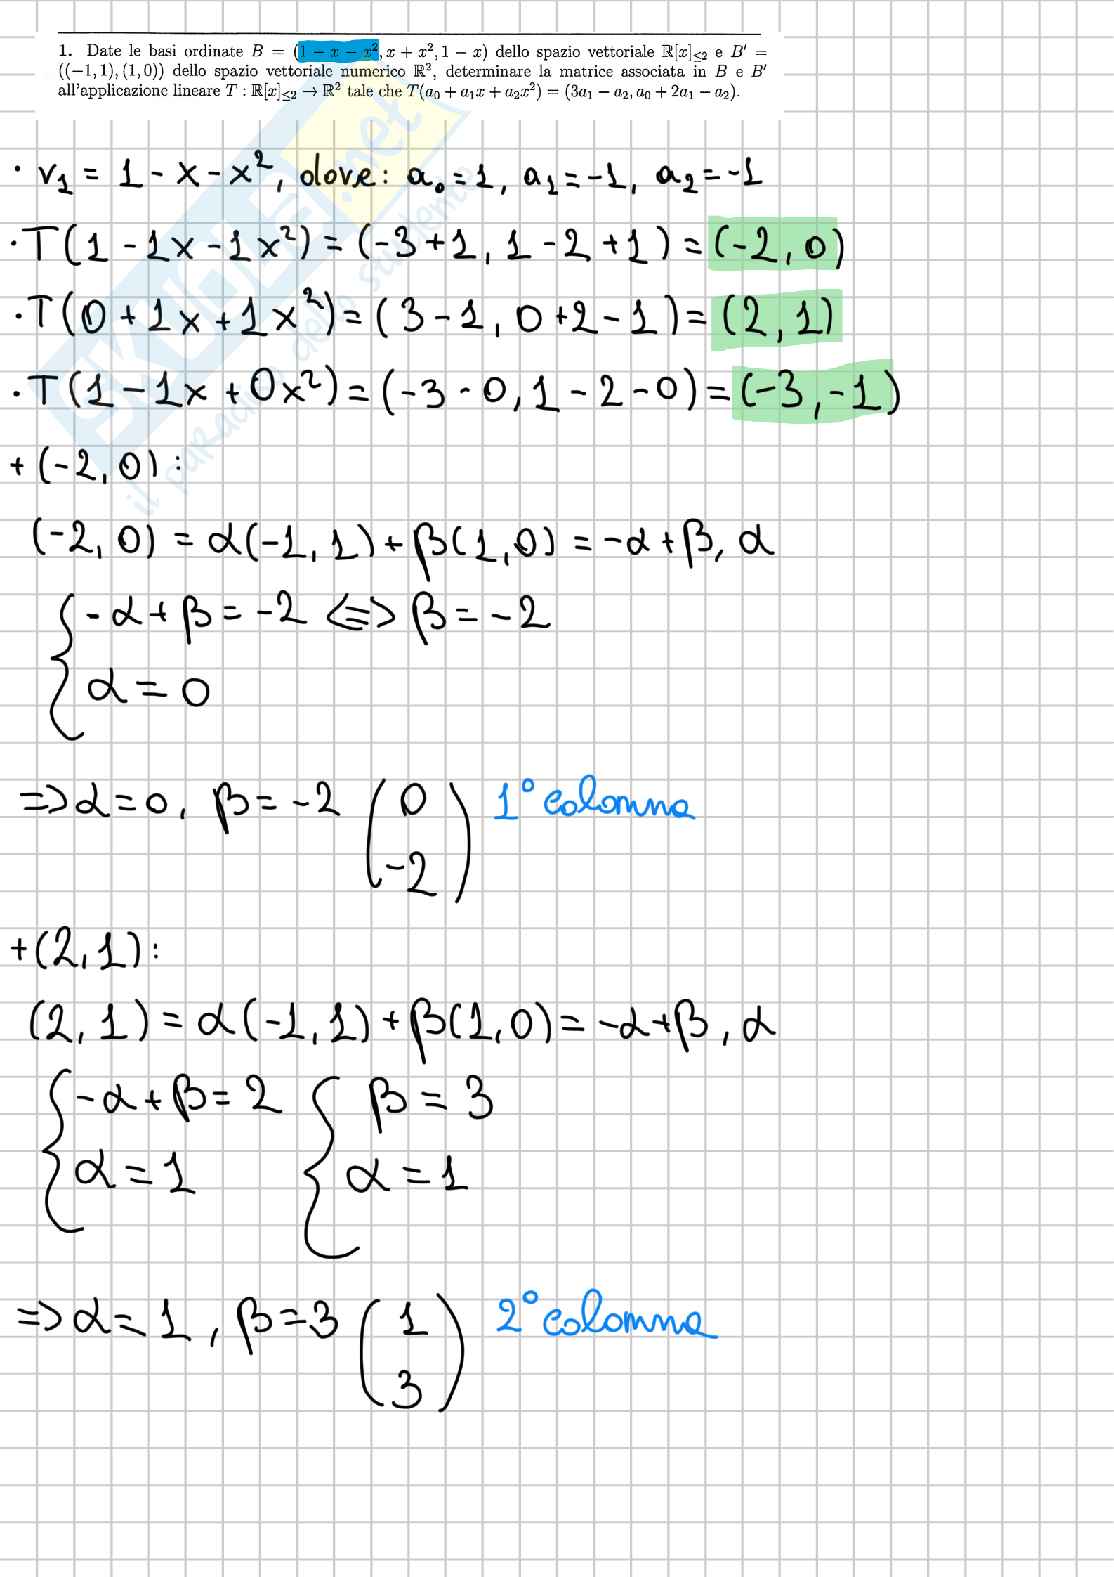 1. Date le basi ordinate B = (1 − x − x², x + x², 1 − x) dello spazio vettoriale ℝ[x]≤2 e B′ =
((−1, 1), (1, 0)) dello spazio vettoriale numerico ℝ², determinare la matrice associata in B e B′
all'applicazione lineare T : ℝ[x]≤2 → ℝ² tale che T(a₀ + a₁x + a₂x²) = (3a₁ − a₂, a₀ + 2a₁ − a₂).
· v₁ = 1 - x - x², dove: a₀ = 1, a₁ = -1, a₂ = -1
· T(1 - 1x - 1x²) = (-3 + 1, 1 - 2 + 1) = (-2, 0)
· T(0 + 1x + 1x²) = (3 - 1, 0 + 2 - 1) = (2, 1)
· T(1 - 1x + 0x²) = (-3 - 0, 1 - 2 - 0) = (-3, -1)
SKUOLA.net
il paradiso dello studente
+ (-2, 0) :
(-2, 0) = α(-1, 1) + β(1, 0) = -α + β, α
{ -α + β = -2 <=> β = -2
α = 0
=> α = 0, β = -2 ( 0 ) 1° colonna
-2
+ (2, 1) :
(2, 1) = α(-1, 1) + β(1, 0) = -α + β, α
{ -α + β = 2 { β = 3
α = 1 α = 1
=> α = 1, β = 3 ( 1 ) 2° colonna
3